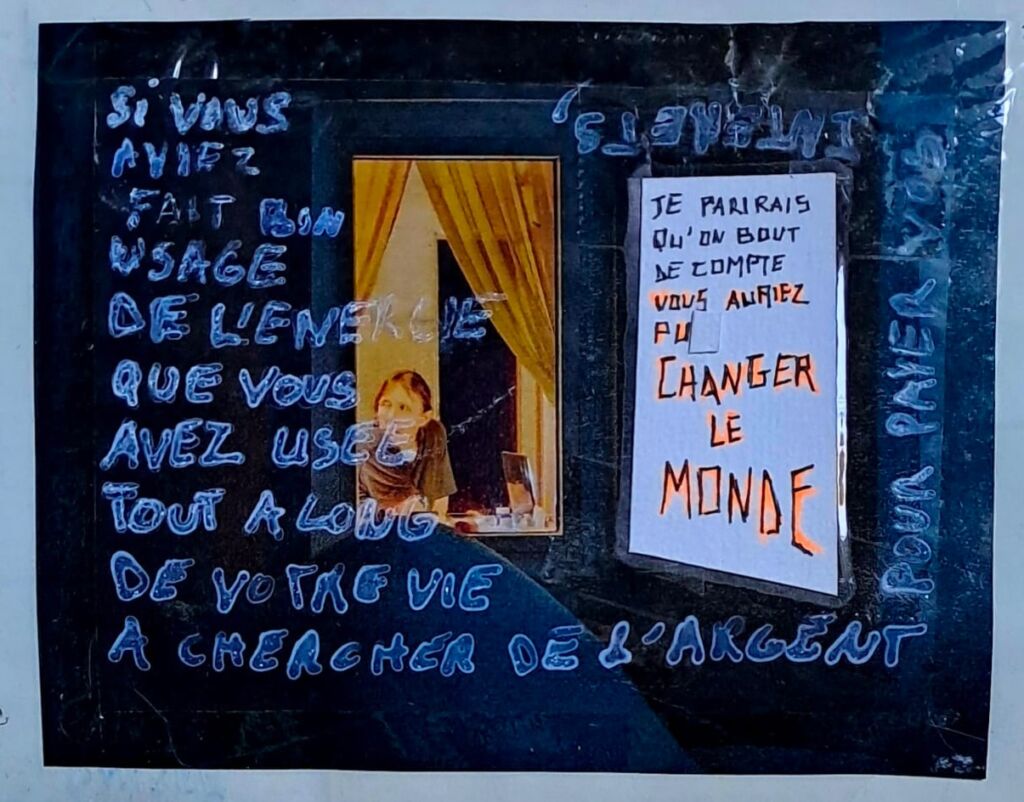 SI VOUS
AVIEZ
FAIT BON
USAGE
DE L'ENERGIE
QUE VOUS
AVEZ USEE
TOUT A LONG
DE VOTRE VIE
A CHERCHER DE L'ARGENT
POUR PAYER VOS
INTERETS,
JE PARIRAIS
QU'ON BOUT
DE COMPTE
VOUS AURIEZ
PU
CHANGER
LE
MONDE